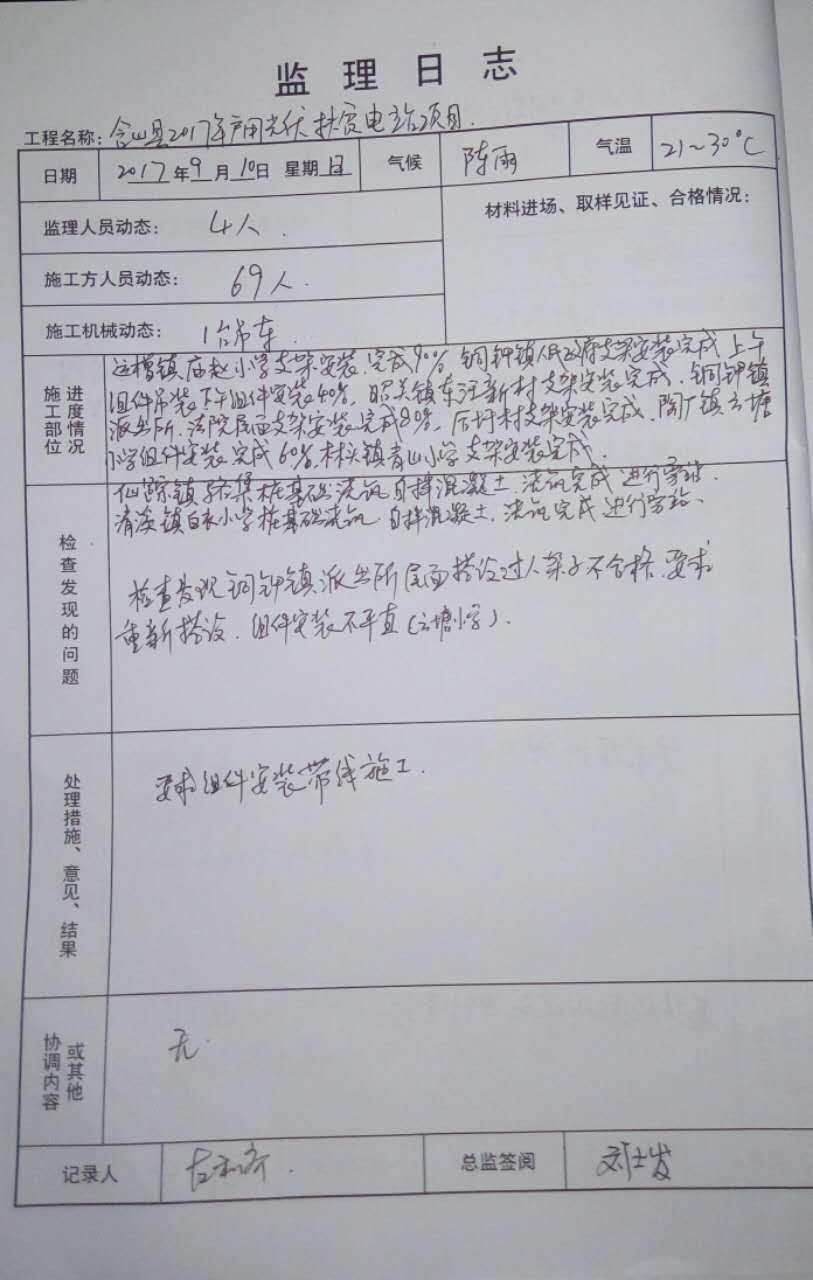 监理日志
工程名称: 含山县2017年户用光伏扶贫电站项目.
日期 2017年9月10日 星期日 气候 阵雨 气温 21~30°C
监理人员动态: 4人.
材料进场、取样见证、合格情况:
施工方人员动态: 69人.
施工机械动态: 1台吊车
施工部位 进度情况
运槽镇庙赵小学支架安装,完成90%, 铜钟镇人民政府支架安装完成上午
组件吊装下午组件安装40%, 昭关镇东汪新村支架安装完成, 铜钟镇
派出所. 法院屋面支架安装完成80%, 后圩村支架安装完成, 陶厂镇云塘
小学组件安装完成60%, 林头镇青山小学支架安装完成.
检查发现的问题
仙踪镇 集桩基础浇筑, 自拌混凝土, 浇筑完成进行
清溪镇白衣小学桩基础浇筑, 自拌混凝土, 浇筑完成进行
检查发现铜钟镇派出所屋面搭设过人架子不合格, 要求
重新搭设. 组件安装不平直(云塘小学).
处理措施、意见、结果
要求组件安装带线施工.
协调内容 或其他
无.
记录人 总监签阅 刘士发